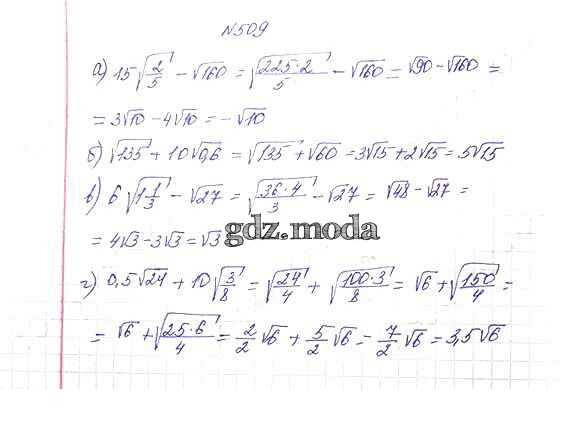 №509
а) 15√(2/5) - √160 = √(225·2/5) - √160 = √90 - √160 =
= 3√10 - 4√10 = -√10
б) √135 + 10√0,6 = √135 + √60 = 3√15 + 2√15 = 5√15
в) 6√(1 1/3) - √27 = √(36·4/3) - √27 = √48 - √27 =
= 4√3 - 3√3 = √3
gdz.moda
г) 0,5√24 + 10√(3/8) = √(24/4) + √(100·3/8) = √6 + √(150/4) =
= √6 + √(25·6/4) = 2/2√6 + 5/2√6 = 7/2√6 = 3,5√6